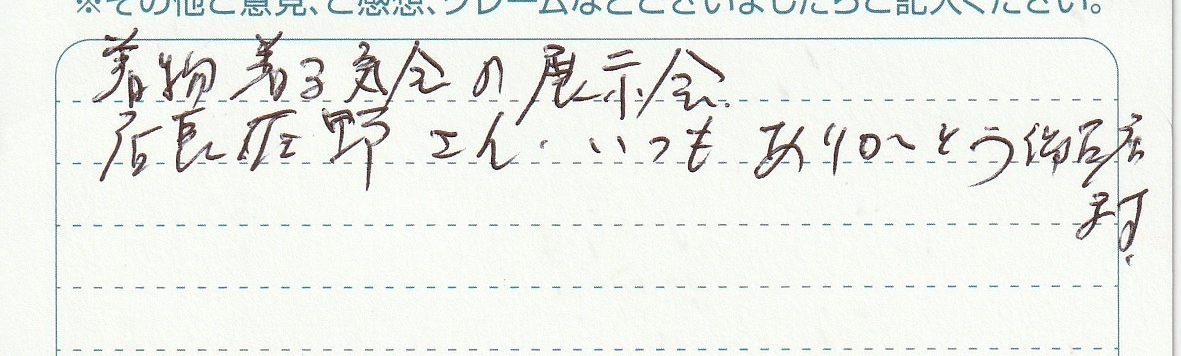 ※その他ご意見、ご感想、クレームなどございましたらご記入ください。
着物着る気会の展示会。
店長庄野さん。いつもありがとう御座居
ます。